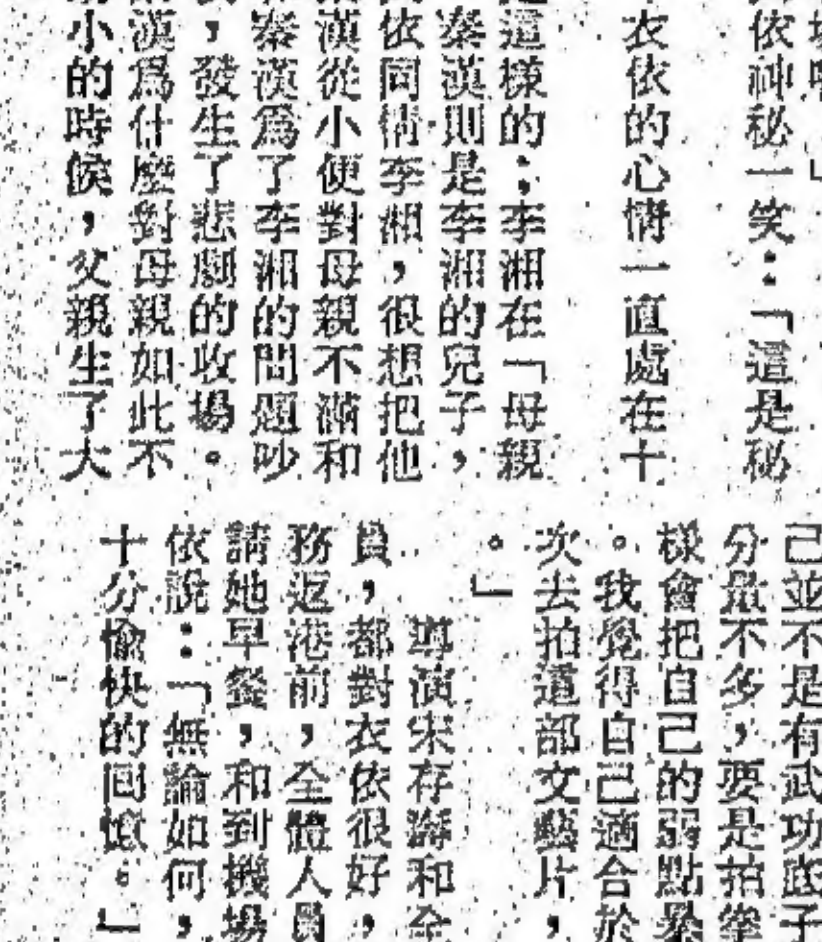 依神秘一笑：「這是秘
衣依的心情一直處在十
這樣的：李湘在「母親
秦漢則是李湘的兒子，
依同情李湘，很想把他
漢從小便對母親不滿和
秦漢爲了李湘的問題吵
，發生了悲劇的收場。
漢爲什麼對母親如此不
小的時候，父親生了大
己並不是有武功底子
分量不多，要是拍拳
樣會把自己的弱點暴
。我覺得自己適合於
次去拍這部文藝片，
。」
導演宋存壽和全
員，都對衣依很好，
務返港前，全體人員
請她早餐，和到機場
依說：「無論如何，
十分愉快的回憶。」